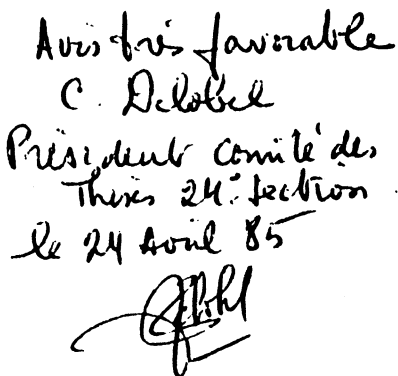 Avis très favorable
C. Delobel
Président Comité des
Thèses 24e Section
le 24 Avril 85